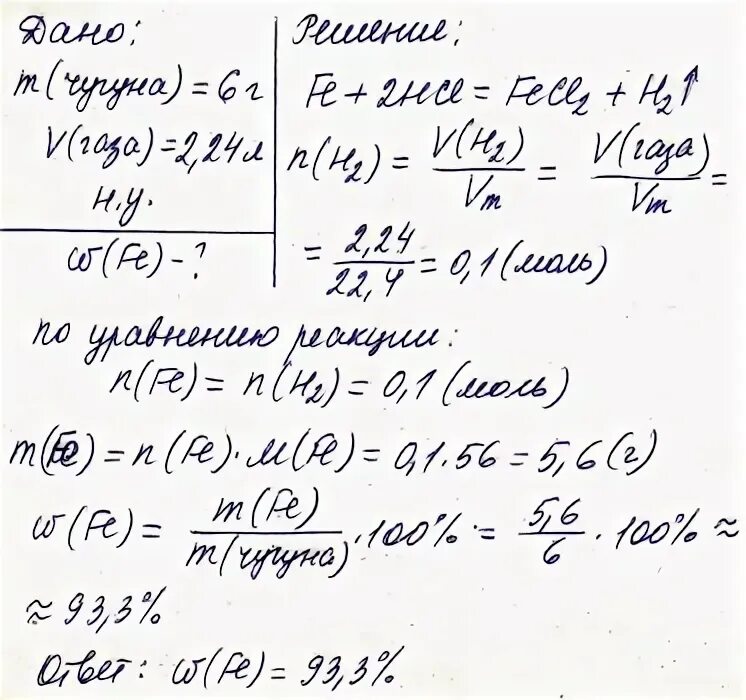 Дано:
m(чугуна) = 6 г
V(газа) = 2,24 л
н.у.
ω(Fe) - ?
Решение:
Fe + 2HCl = FeCl₂ + H₂↑
n(H₂) = V(H₂)/Vm = V(газа)/Vm =
= 2,24/22,4 = 0,1 (моль)
по уравнению реакции:
n(Fe) = n(H₂) = 0,1 (моль)
m(Fe) = n(Fe)·M(Fe) = 0,1·56 = 5,6 (г)
ω(Fe) = m(Fe)/m(чугуна) · 100% = 5,6/6 · 100% ≈
≈ 93,3%
Ответ: ω(Fe) = 93,3%